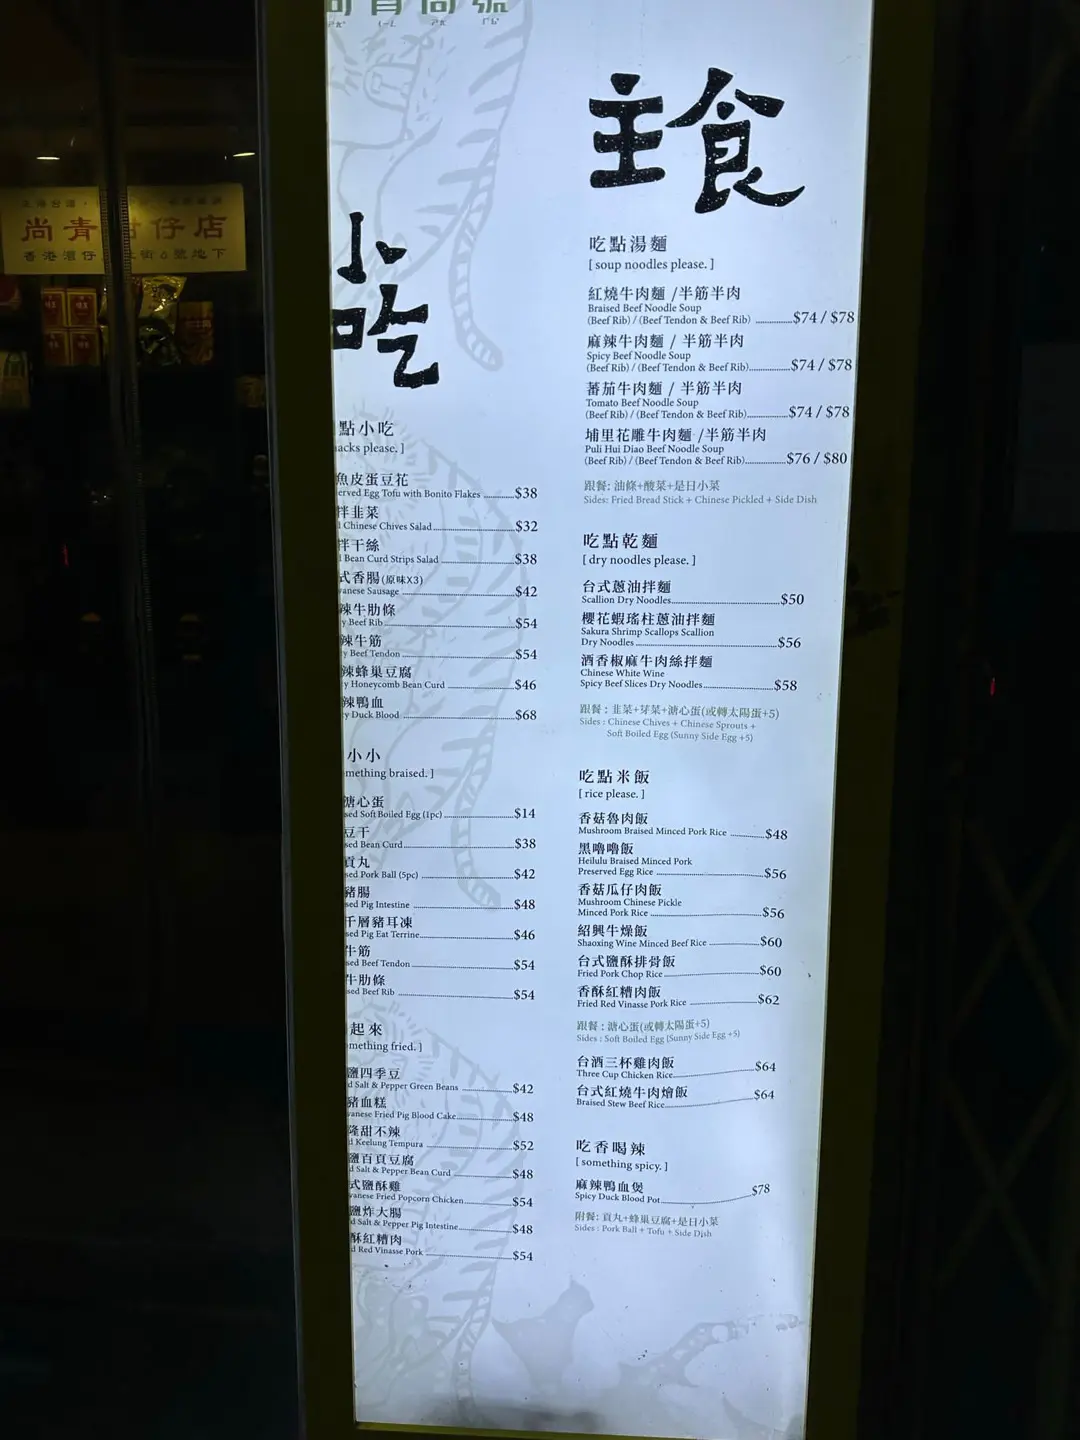 尚青
仔店
香港灣仔
街6號地下
小吃
點小吃
acks please. ]
魚皮蛋豆花
erved Egg Tofu with Bonito Flakes $38
拌韭菜
l Chinese Chives Salad $32
拌干絲
l Bean Curd Strips Salad $38
式香腸(原味X3)
vanese Sausage $42
辣牛肋條
y Beef Rib $54
辣牛筋
y Beef Tendon $54
辣蜂巢豆腐
y Honeycomb Bean Curd $46
辣鴨血
y Duck Blood $68
小小
mething braised. ]
溏心蛋
sed Soft Boiled Egg (1pc) $14
豆干
sed Bean Curd $38
貢丸
sed Pork Ball (5pc) $42
豬腸
sed Pig Intestine $48
千層豬耳凍
sed Pig Eat Terrine $46
牛筋
sed Beef Tendon $54
牛肋條
sed Beef Rib $54
起來
mething fried. ]
鹽四季豆
d Salt & Pepper Green Beans $42
豬血糕
vanese Fried Pig Blood Cake $48
隆甜不辣
d Keelung Tempura $52
鹽百頁豆腐
d Salt & Pepper Bean Curd $48
式鹽酥雞
vanese Fried Popcorn Chicken $54
鹽炸大腸
d Salt & Pepper Pig Intestine $48
酥紅糟肉
d Red Vinasse Pork $54
主食
吃點湯麵
[ soup noodles please. ]
紅燒牛肉麵 /半筋半肉
Braised Beef Noodle Soup
(Beef Rib) / (Beef Tendon & Beef Rib) $74 / $78
麻辣牛肉麵 / 半筋半肉
Spicy Beef Noodle Soup
(Beef Rib) / (Beef Tendon & Beef Rib) $74 / $78
蕃茄牛肉麵 / 半筋半肉
Tomato Beef Noodle Soup
(Beef Rib) / (Beef Tendon & Beef Rib) $74 / $78
埔里花雕牛肉麵 /半筋半肉
Puli Hui Diao Beef Noodle Soup
(Beef Rib) / (Beef Tendon & Beef Rib) $76 / $80
跟餐: 油條+酸菜+是日小菜
Sides: Fried Bread Stick + Chinese Pickled + Side Dish
吃點乾麵
[ dry noodles please. ]
台式蔥油拌麵
Scallion Dry Noodles $50
櫻花蝦瑤柱蔥油拌麵
Sakura Shrimp Scallops Scallion
Dry Noodles $56
酒香椒麻牛肉絲拌麵
Chinese White Wine
Spicy Beef Slices Dry Noodles $58
跟餐 : 韭菜+芽菜+溏心蛋(或轉太陽蛋+5)
Sides : Chinese Chives + Chinese Sprouts +
Soft Boiled Egg (Sunny Side Egg +5)
吃點米飯
[ rice please. ]
香菇魯肉飯
Mushroom Braised Minced Pork Rice $48
黑嚕嚕飯
Heilulu Braised Minced Pork
Preserved Egg Rice $56
香菇瓜仔肉飯
Mushroom Chinese Pickle
Minced Pork Rice $56
紹興牛燥飯
Shaoxing Wine Minced Beef Rice $60
台式鹽酥排骨飯
Fried Pork Chop Rice $60
香酥紅糟肉飯
Fried Red Vinasse Pork Rice $62
跟餐 : 溏心蛋(或轉太陽蛋+5)
Sides : Soft Boiled Egg (Sunny Side Egg +5)
台酒三杯雞肉飯
Three Cup Chicken Rice $64
台式紅燒牛肉燴飯
Braised Stew Beef Rice $64
吃香喝辣
[ something spicy. ]
麻辣鴨血煲
Spicy Duck Blood Pot $78
附餐: 貢丸+蜂巢豆腐+是日小菜
Sides : Pork Ball + Tofu + Side Dish